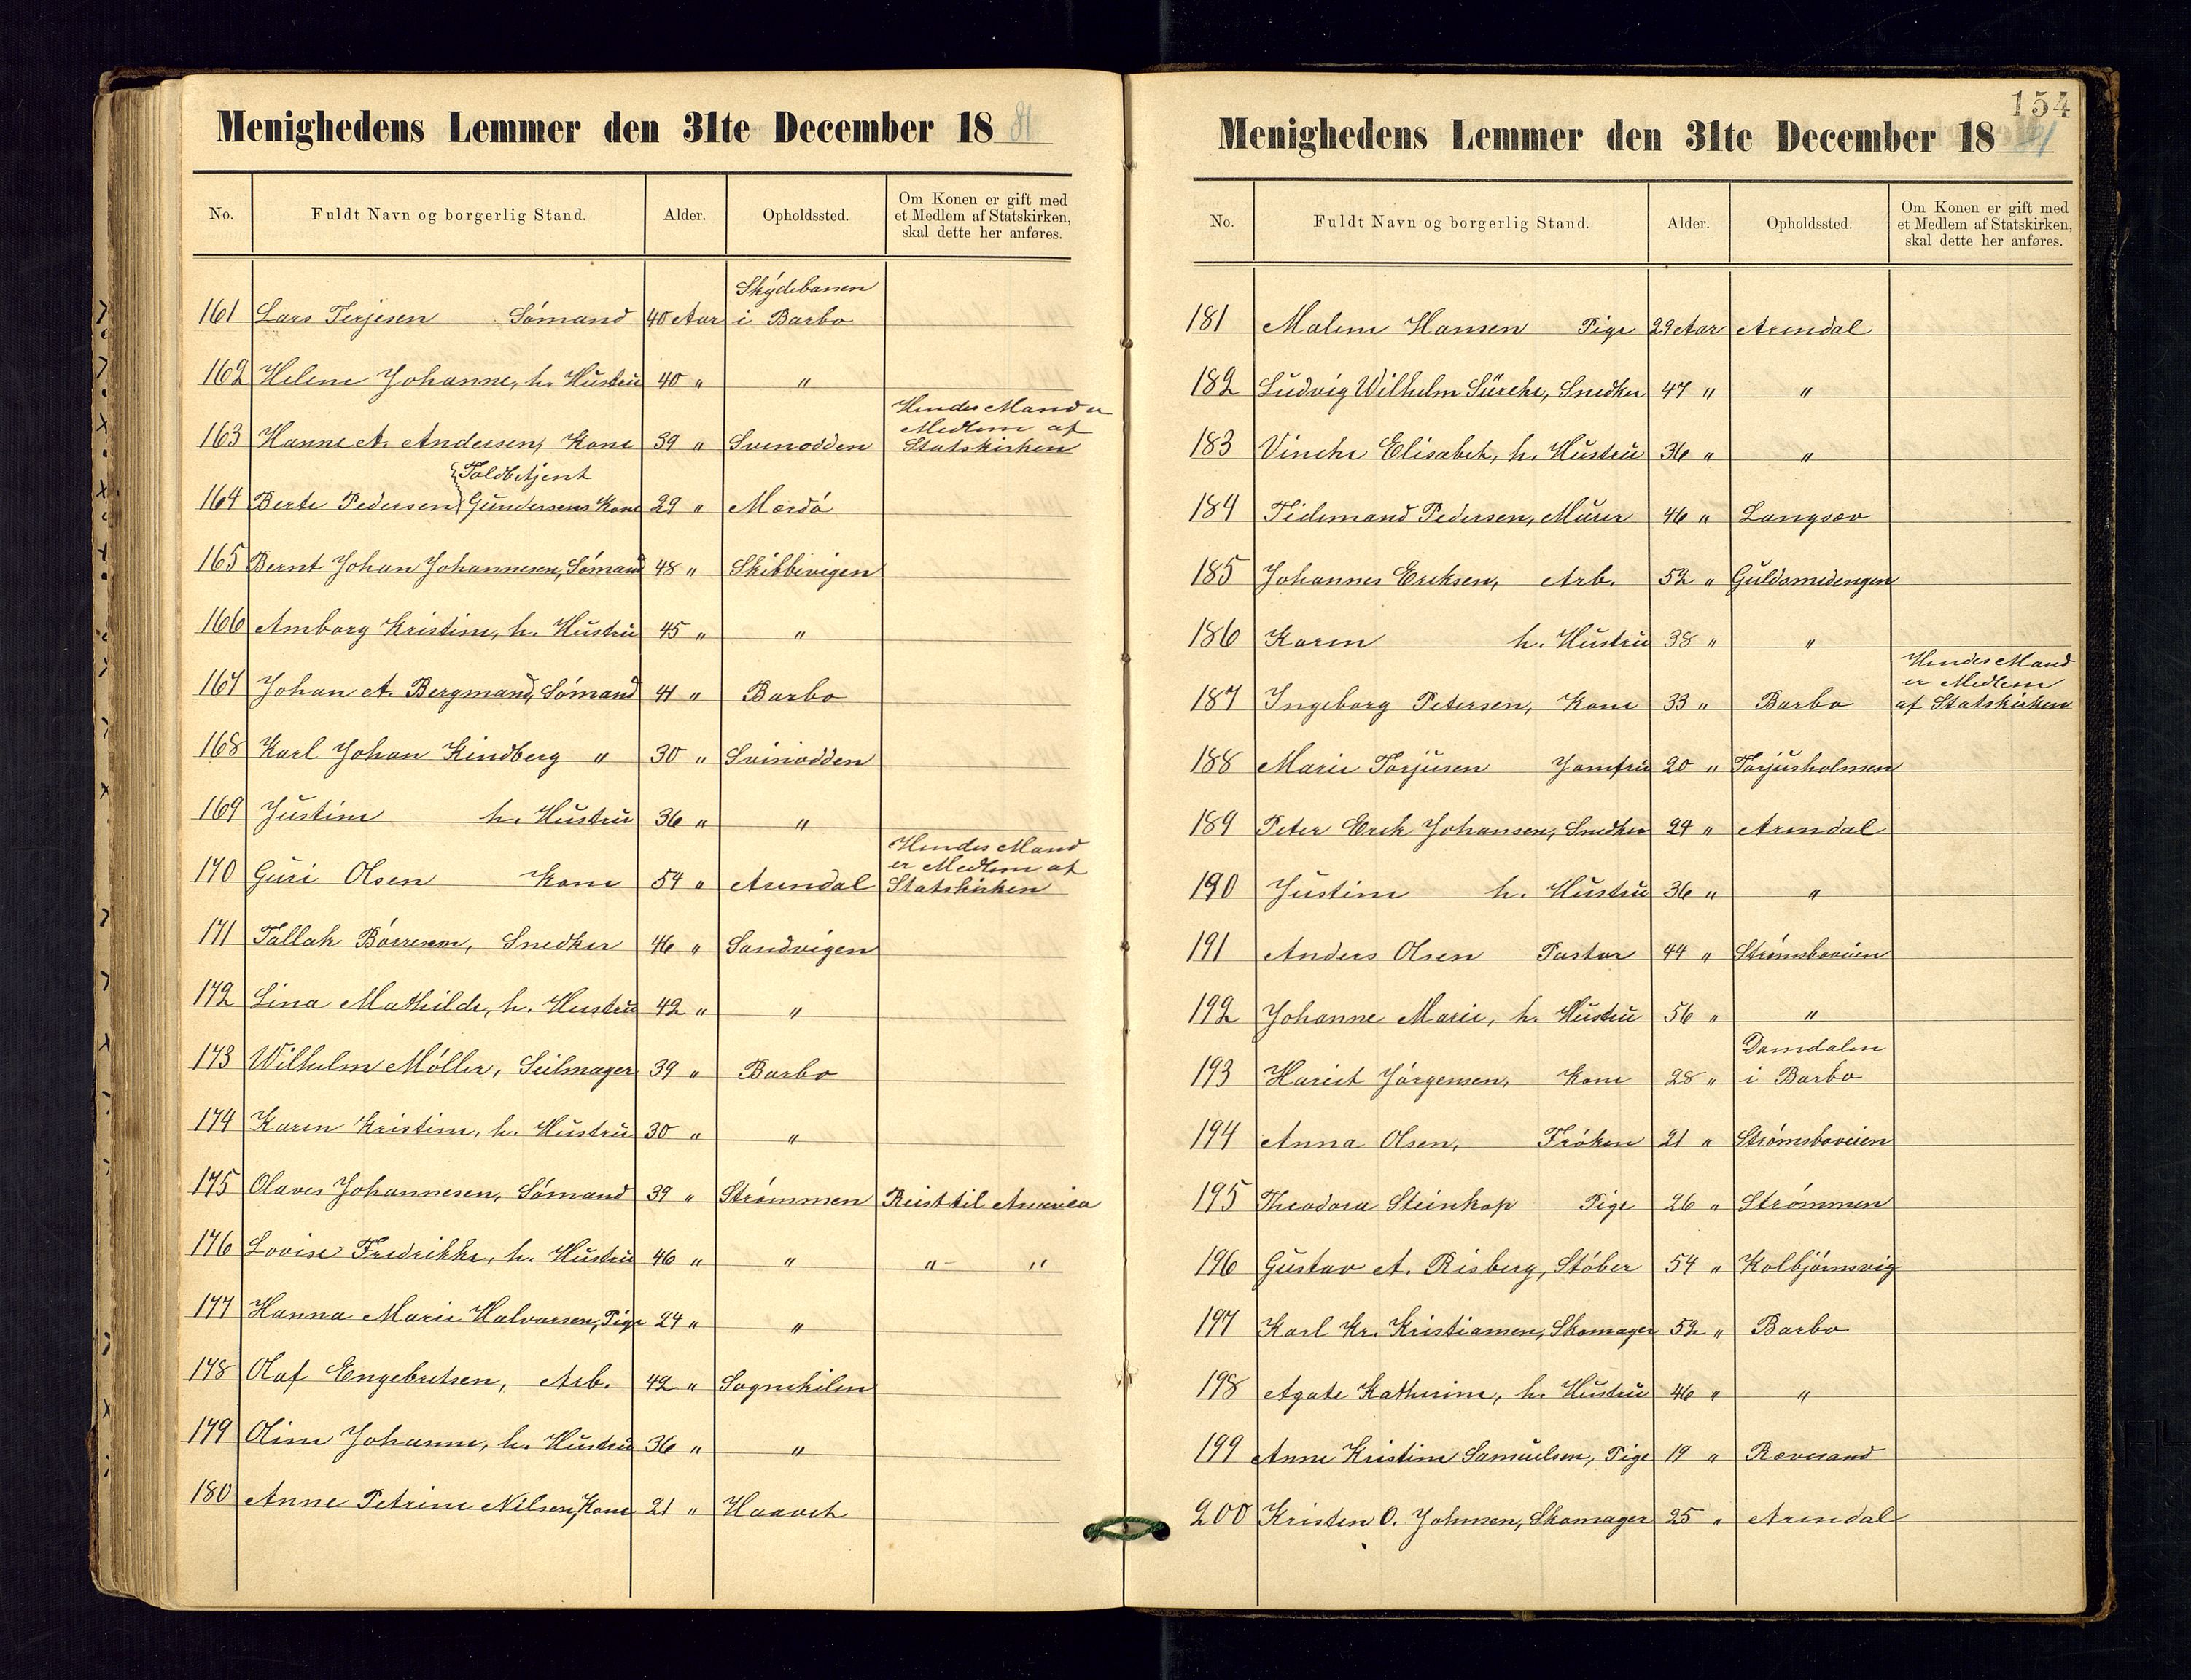 Menighedens Lemmer den 31te December 1881
No. Fuldt Navn og borgerlig Stand. Alder. Opholdssted. Om Konen er gift med
et Medlem af Statskirken,
skal dette her anføres.
Skydebanen
161 Lars Terjesen Sømand 40 Aar i Barbo
162 Helene Johanne, h. Hustru 40 " "
Hendes Mand er
Medlem af
163 Hanne A. Andersen, Kone 39 " Svinodden Statskirken
Toldbetjent
164 Berte Pedersen Gundersens Kone 29 " Merdø
165 Bernt Johan Johannesen, Sømand 48 " Skibbvigen
166 Amborg Kristine, h. Hustru 45 " "
167 Johan A. Bergmand, Sømand 41 " Barbo
168 Karl Johan Kindberg " 30 " Svinodden
169 Justine h. Hustru 36 " "
Hendes Mand
er Medlem af
170 Guri Olsen Kone 54 " Arendal Statskirken
171 Tallak Børresen, Snedker 46 " Sandvigen
172 Lina Mathilde, h. Hustru 42 " "
173 Wilhelm Møller, Seilmager 39 " Barbo
174 Karen Kristine, h. Hustru 30 " "
175 Olaves Johannesen, Sømand 39 " Strømmen Reist til America
176 Lovise Fredrikke, h. Hustru 46 " " " "
177 Hanna Marie Halvorsen, Pige 24 " "
178 Olaf Engebretsen, Arb. 42 " Sognekilen
179 Oline Johanne, h. Hustru 36 " "
180 Anne Petrine Nilsen, Kone 21 " Haavet
154
Menighedens Lemmer den 31te December 1881
No. Fuldt Navn og borgerlig Stand. Alder. Opholdssted. Om Konen er gift med
et Medlem af Statskirken,
skal dette her anføres.
181 Malene Hansen Pige 29 Aar Arendal
182 Ludvig Wilhelm Sürche, Snedker 47 " "
183 Vincke Elisabet, h. Hustru 36 " "
184 Tidemand Pedersen, Murer 46 " Langsæv
185 Johannes Ericksen, Arb. 52 " Guldsmedengen
186 Karen h. Hustru 38 " "
Hendes Mand
er Medlem
187 Ingeborg Petersen, Kone 33 " Barbo af Statskirken
188 Marie Torjusen Jomfru 20 " Torjusholmen
189 Peter Erek Johansen, Snedker 24 " Arendal
190 Justine h. Hustru 36 " "
191 Anders Olsen Pastor 44 " Strømsboveien
192 Johanne Marie, h. Hustru 56 " "
Damdalen
193 Hariet Jørgensen, Kone 28 " i Barbo
194 Anna Olsen, Frøken 21 " Strømsboveien
195 Theodora Steinkop Pige 26 " Strømmen
196 Gustav A. Risberg, Støber 54 " Kolbjørnsvig
197 Karl Kr. Kristiansen, Skomager 52 " Barbo
198 Agate Katherine, h. Hustru 46 " "
199 Anne Kristine Samuelsen, Pige 19 " Rævesand
200 Kristen O. Johnsen, Skomager 25 " Arendal